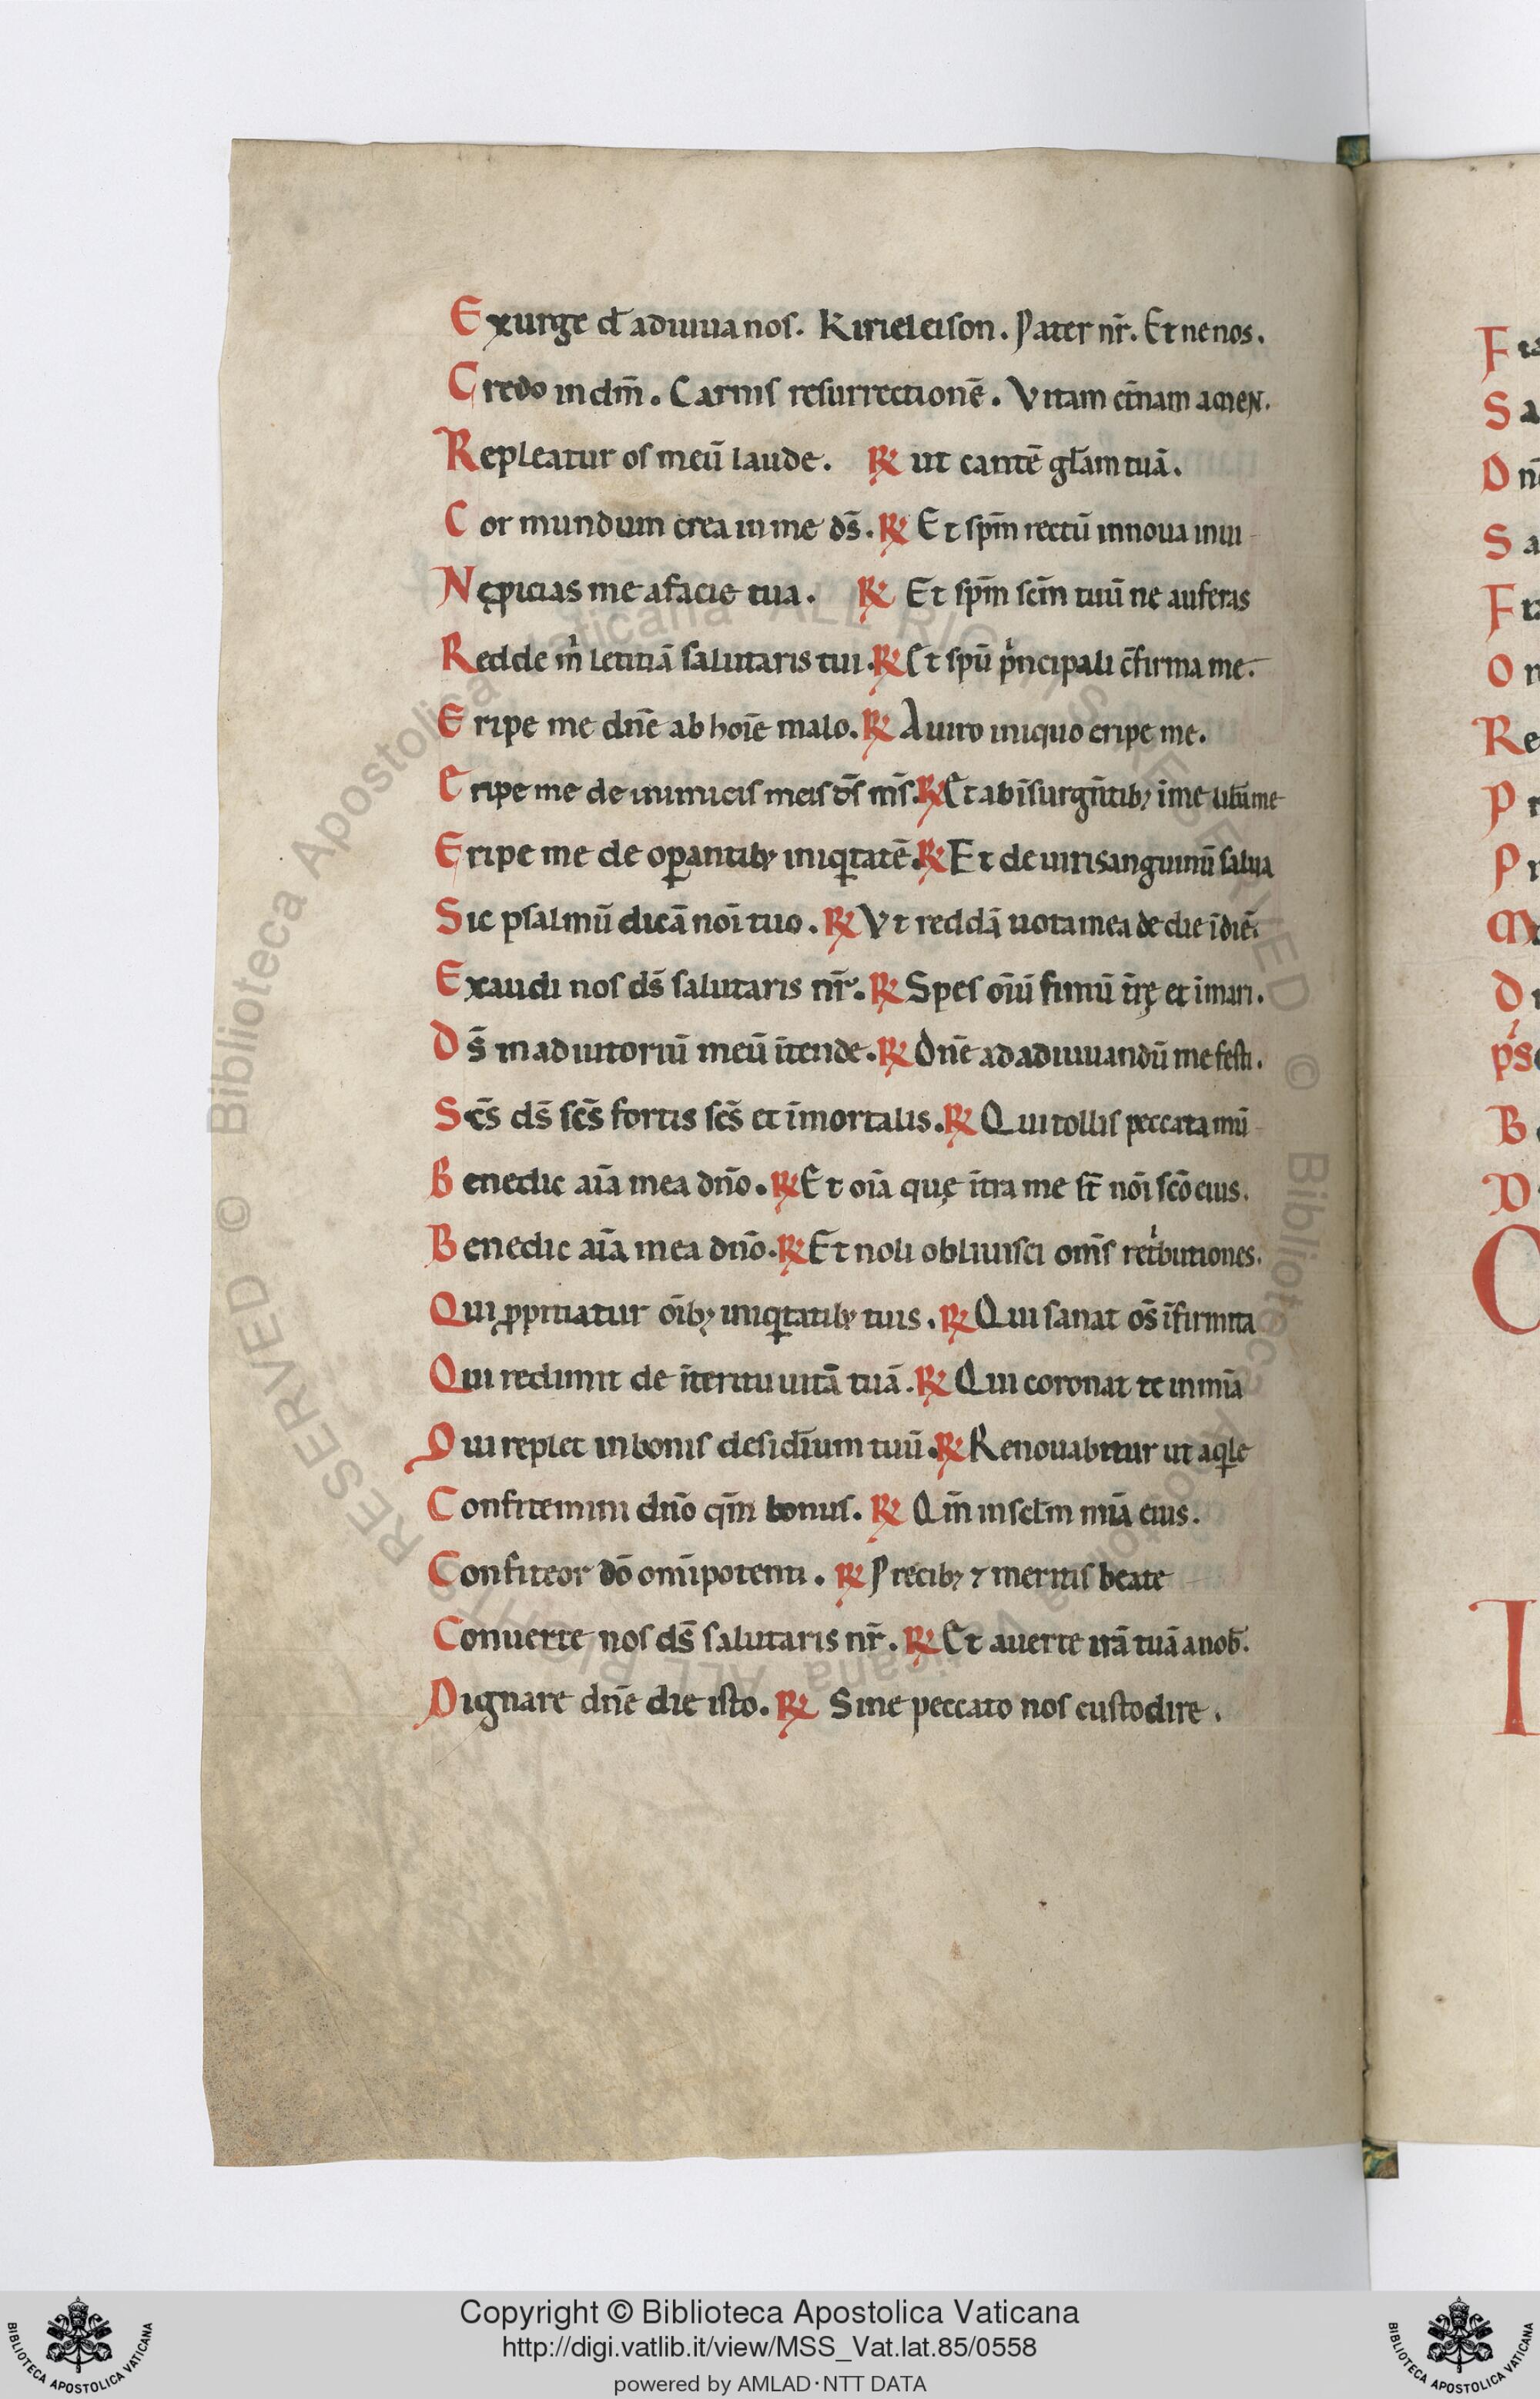 Exurge xp̄e adiuua nos. Kirieleison. Pater nr̄. Et ne nos.
Credo in dm̄. Carnis resurrectionē. Vitam et̄nam amen.
Repleatur os meū laude. ℟ ut cantē gl̄am tuā.
Cor mundum crea in me ds̄. ℟ Et sp̄m rectū innoua in ui
Ne ꝓicias me a facie tua. ℟ Et sp̄m sc̄m tuū ne auferas
Redde m̄ letitiā salutaris tui. ℟ Et spū p̄ncipali c̄firma me.
Eripe me dn̄e ab hoīe malo. ℟ A uiro iniquo eripe me.
Eripe me de inimicis meis ds̄ ms̄. ℟ Et ab īsurgn̄tibꝫ ī me lib̄a me
Eripe me de oꝑantibꝫ iniqͥtatē. ℟ Et de uiri sanguinū salua
Sic psalmū dicā noī tuo. ℟ Vt reddā uota mea de die ī diē.
Exaudi nos ds̄ salutaris nr̄. ℟ Spes oīū finiū tr̄ę et ī mari.
Ds̄ in adiutoriū meū ītende. ℟ Dn̄e ad adiuuandū me festi.
Sc̄s ds̄ sc̄s fortis sc̄s et īmortalis. ℟ Qui tollis peccata mū
Benedic aīa mea dn̄o. ℟ Et oīa quę īt̄ra me st̄ noī scō eius.
Benedic aīa mea dn̄o. ℟ Et noli obliuisci oms̄ retͥbutiones.
Qui ꝓpitiatur oībꝫ iniqͥtatibꝫ tuis. ℟ Qui sanat os̄ īfirmita
Qui redimit de īteritu uitā tuā. ℟ Qui coronat te in mīa
Qui replet in bonis desid̄ium tuū. ℟ Renouabitur ut aqͥle
Confitemini dn̄o qm̄ bonus. ℟ Qm̄ in sc̄lm mīa eius.
Confiteor dō omīpotenti. ℟ Precibꝫ ⁊ meritis beate
Conuerte nos ds̄ salutaris nr̄. ℟ Et auerte irā tuā a nob̄.
Dignare dn̄e die isto. ℟ Sine peccato nos custodire.
Copyright © Biblioteca Apostolica Vaticana
http://digi.vatlib.it/view/MSS_Vat.lat.85/0558
powered by AMLAD·NTT DATA